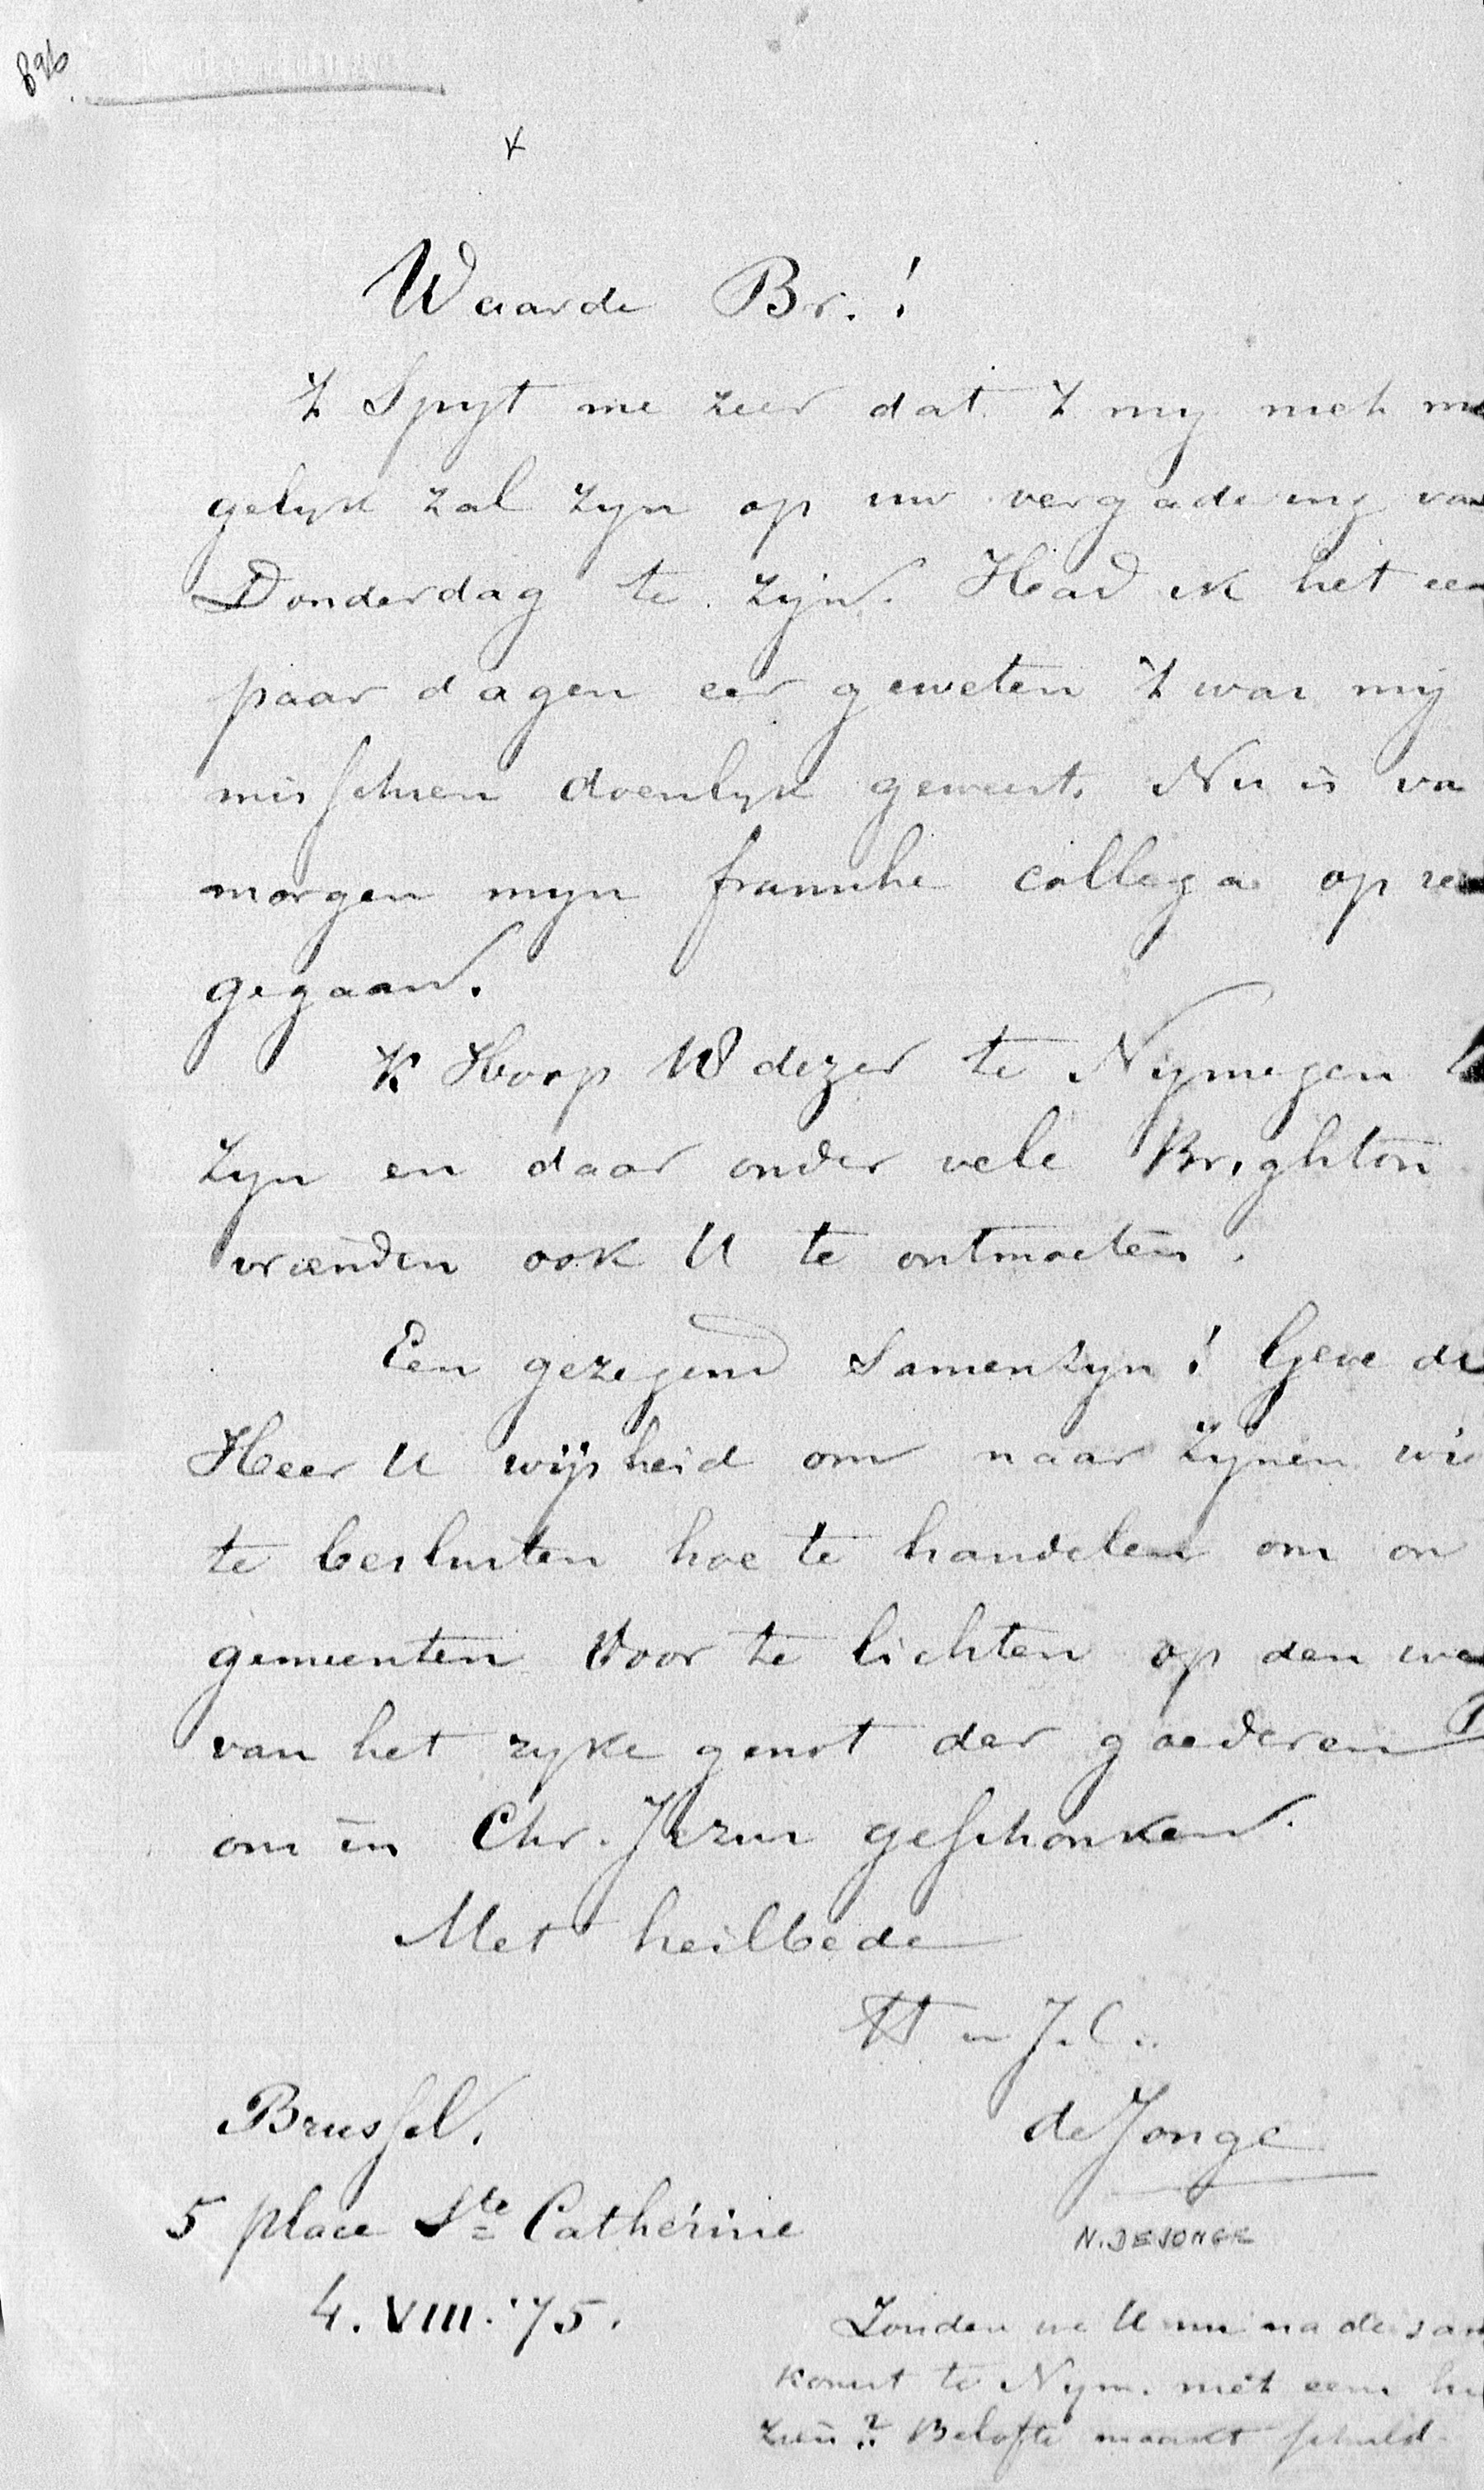 896
Waarde Br.!
't Spyt me zeer dat 't my niet mo
gelyk zal zyn op uw vergadering van
Donderdag te zijn. Had ik het een
paar dagen eer geweten 't war mij
misschien doenlyk geweest. Nu is va
morgen myn fransche collega op reis
gegaan.
'k Hoop 18 dezer te Nymegen te
zyn en daar onder vele Brighton
vrienden ook U te ontmoeten.
Een gezegend samenzyn! Geve de
Heer U wijsheid om naar Zijnen wi
te besluiten hoe te handelen om on
gemeenten voor te lichten op den we
van het ryke genot der goederen
ons in Chr. Jezus geschonken.
Met heilbede
tt in J.C.
de Jonge
N. DE JONGE
Brussel.
5 place Ste Cathérine
4. VIII. '75.
Zouden we U nu na de sam
komst te Nym. niet eens hi
zien?? Belofte maakt schuld.